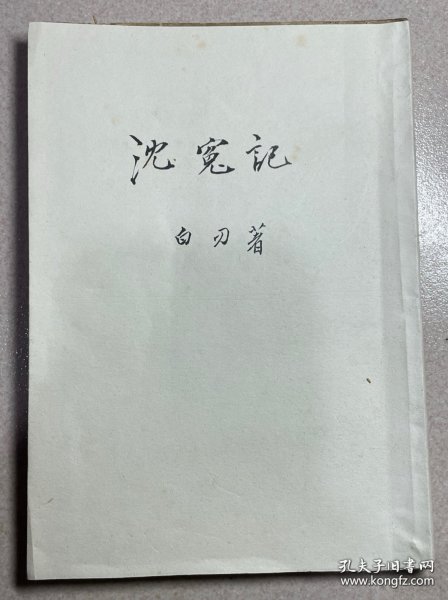 沈冤記
白刃著
孔夫子旧书网
www.kongfz.com